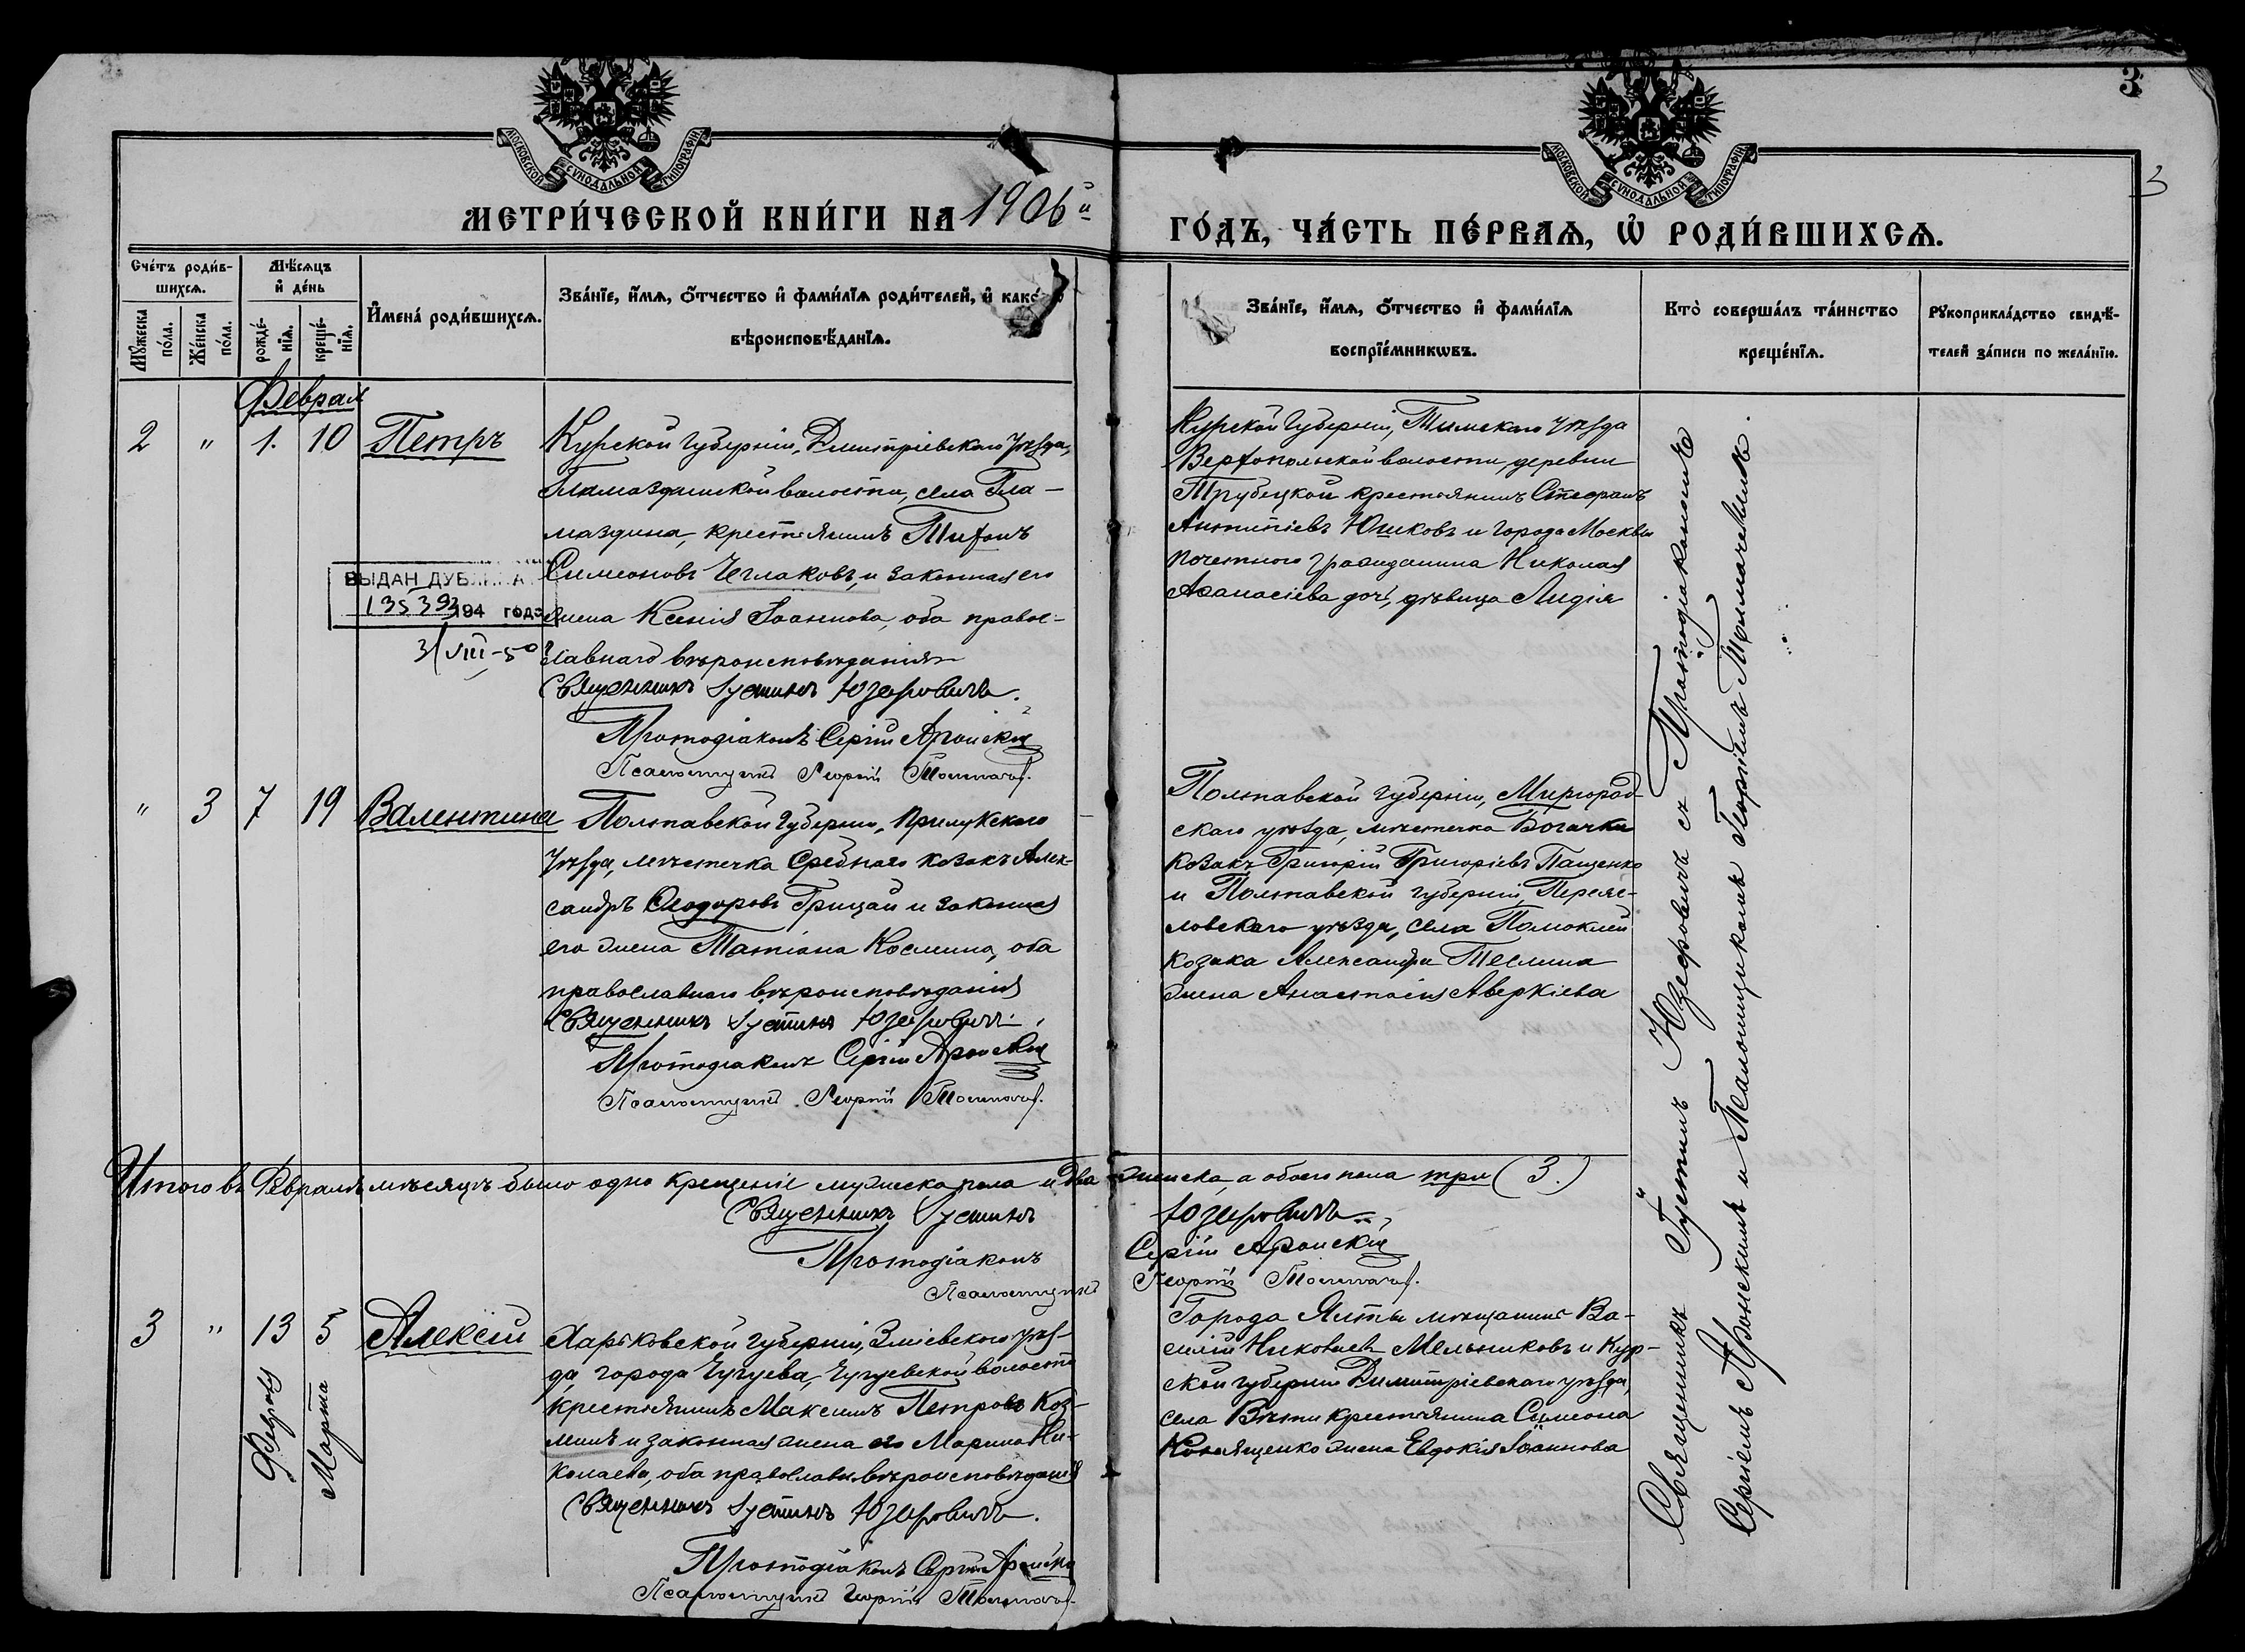 3
3
МОСКОВСКОЙ СѴНОДАЛЬНОЙ ТИПОГРАФІИ
МОСКОВСКОЙ СѴНОДАЛЬНОЙ ТИПОГРАФІИ
МЕТРИ́ЧЕСКОЙ КНИ́ГИ НА 1906й
ГО́ДЪ, ЧА́СТЬ ПЕ́РВАѦ, Ѡ҆ РОДИ́ВШИХСѦ.
Сче́тъ роди́в-
шихсѧ.
Мꙋ́жеска по́ла.
Же́нска по́ла.
Мѣ́сѧцъ
и҆ де́нь
рожде́-
нїѧ.
креще́-
нїѧ.
И҆мена́ роди́вшихсѧ.
Зва́нїе, и҆́мѧ, ѻ҆́тчество и҆ фами́лїѧ роди́телей, и҆ како́
вѣроисповѣ́данїѧ.
Зва́нїе, и҆́мѧ, ѻ҆́тчество и҆ фами́лїѧ
воспрїе́мникѡвъ.
Кто̀ соверша́лъ та́инство
креще́нїѧ.
Рꙋкоприкла́дство свидѣ́-
телей за́писи по жела́нїю.
Феврал
2 " 1. 10 Петръ
Курской губерніи, Димитріевскаго уѣзда,
Гламаздинской волости, села Гла-
маздина, крестьянинъ Тихонъ
Симеоновъ Чеглаковъ, и законная его
жена Ксенія Іоаннова, оба правос-
лавнаго вѣроисповѣданія
Священникъ Іустинъ Юзефовичъ.
Протодіаконъ Сергій Аронскій
Псаломщикъ Георгій Толмачев.
ВЫДАН ДУБЛИКА
13539 194 года
31/VIII-50
Курской губерніи, Тимскаго уѣзда
Верхопольской волости, деревни
Трубецкой крестьянинъ Стефанъ
Антипіевъ Юшковъ и города Москвы
почетного гражданина Николая
Аѳанасіева дочь, дѣвица Лидія
" 3 7 19 Валентина
Полтавской губерніи, Прилукскаго
уѣзда, мѣстечка Средняго козакъ Алек-
сандръ Ѳеодоровъ Грицай и законная
его жена Татіана Космина, оба
православнаго вѣроисповѣданія
Священникъ Іустинъ Юзефовичъ.
Протодіаконъ Сергій Аронскій
Псаломщикъ Георгій Толмачев.
Полтавской губерніи, Миргород-
скаго уѣзда, мѣстечка Богачки
козакъ Григорій Григоріевъ Пащенко
и Полтавской губерніи, Переяс-
ловскаго уѣзда, села Помоклей
козака Александра Теслина
жена Анастасія Аверкіева
Итого въ Февралѣ мѣсяцѣ было одно крещеніе мужеска пола и два женска, а обоего пола три (3.)
Священникъ Іустинъ Юзефовичъ.
Протодіаконъ Сергій Аронскій
Псаломщикъ Георгій Толмачев.
3 " 13 5 Алексій
Февраля
Марта
Харьковской губерніи, Зміевскаго уѣз-
да города Чугуева, Чугуевской волости
крестьянинъ Максимъ Петровъ Коз-
минъ и законная жена его Марина Ни-
колаева, оба православн. вѣроисповѣданія
Священникъ Іустинъ Юзефовичъ.
Протодіаконъ Сергій Аронскій
Псаломщикъ Георгій Толмачев.
Города Ялты мѣщанинъ Ва-
силій Николаевъ Мельниковъ и Кур-
ской губерніи Димитріевскаго уѣзда,
села крестьянина Симеона
жена Евдокія Іоаннова
Священникъ Іустинъ Юзефовичъ съ Протодіакономъ
Сергіемъ Аронскимъ и Псаломщикомъ Георгіемъ Толмачевымъ.